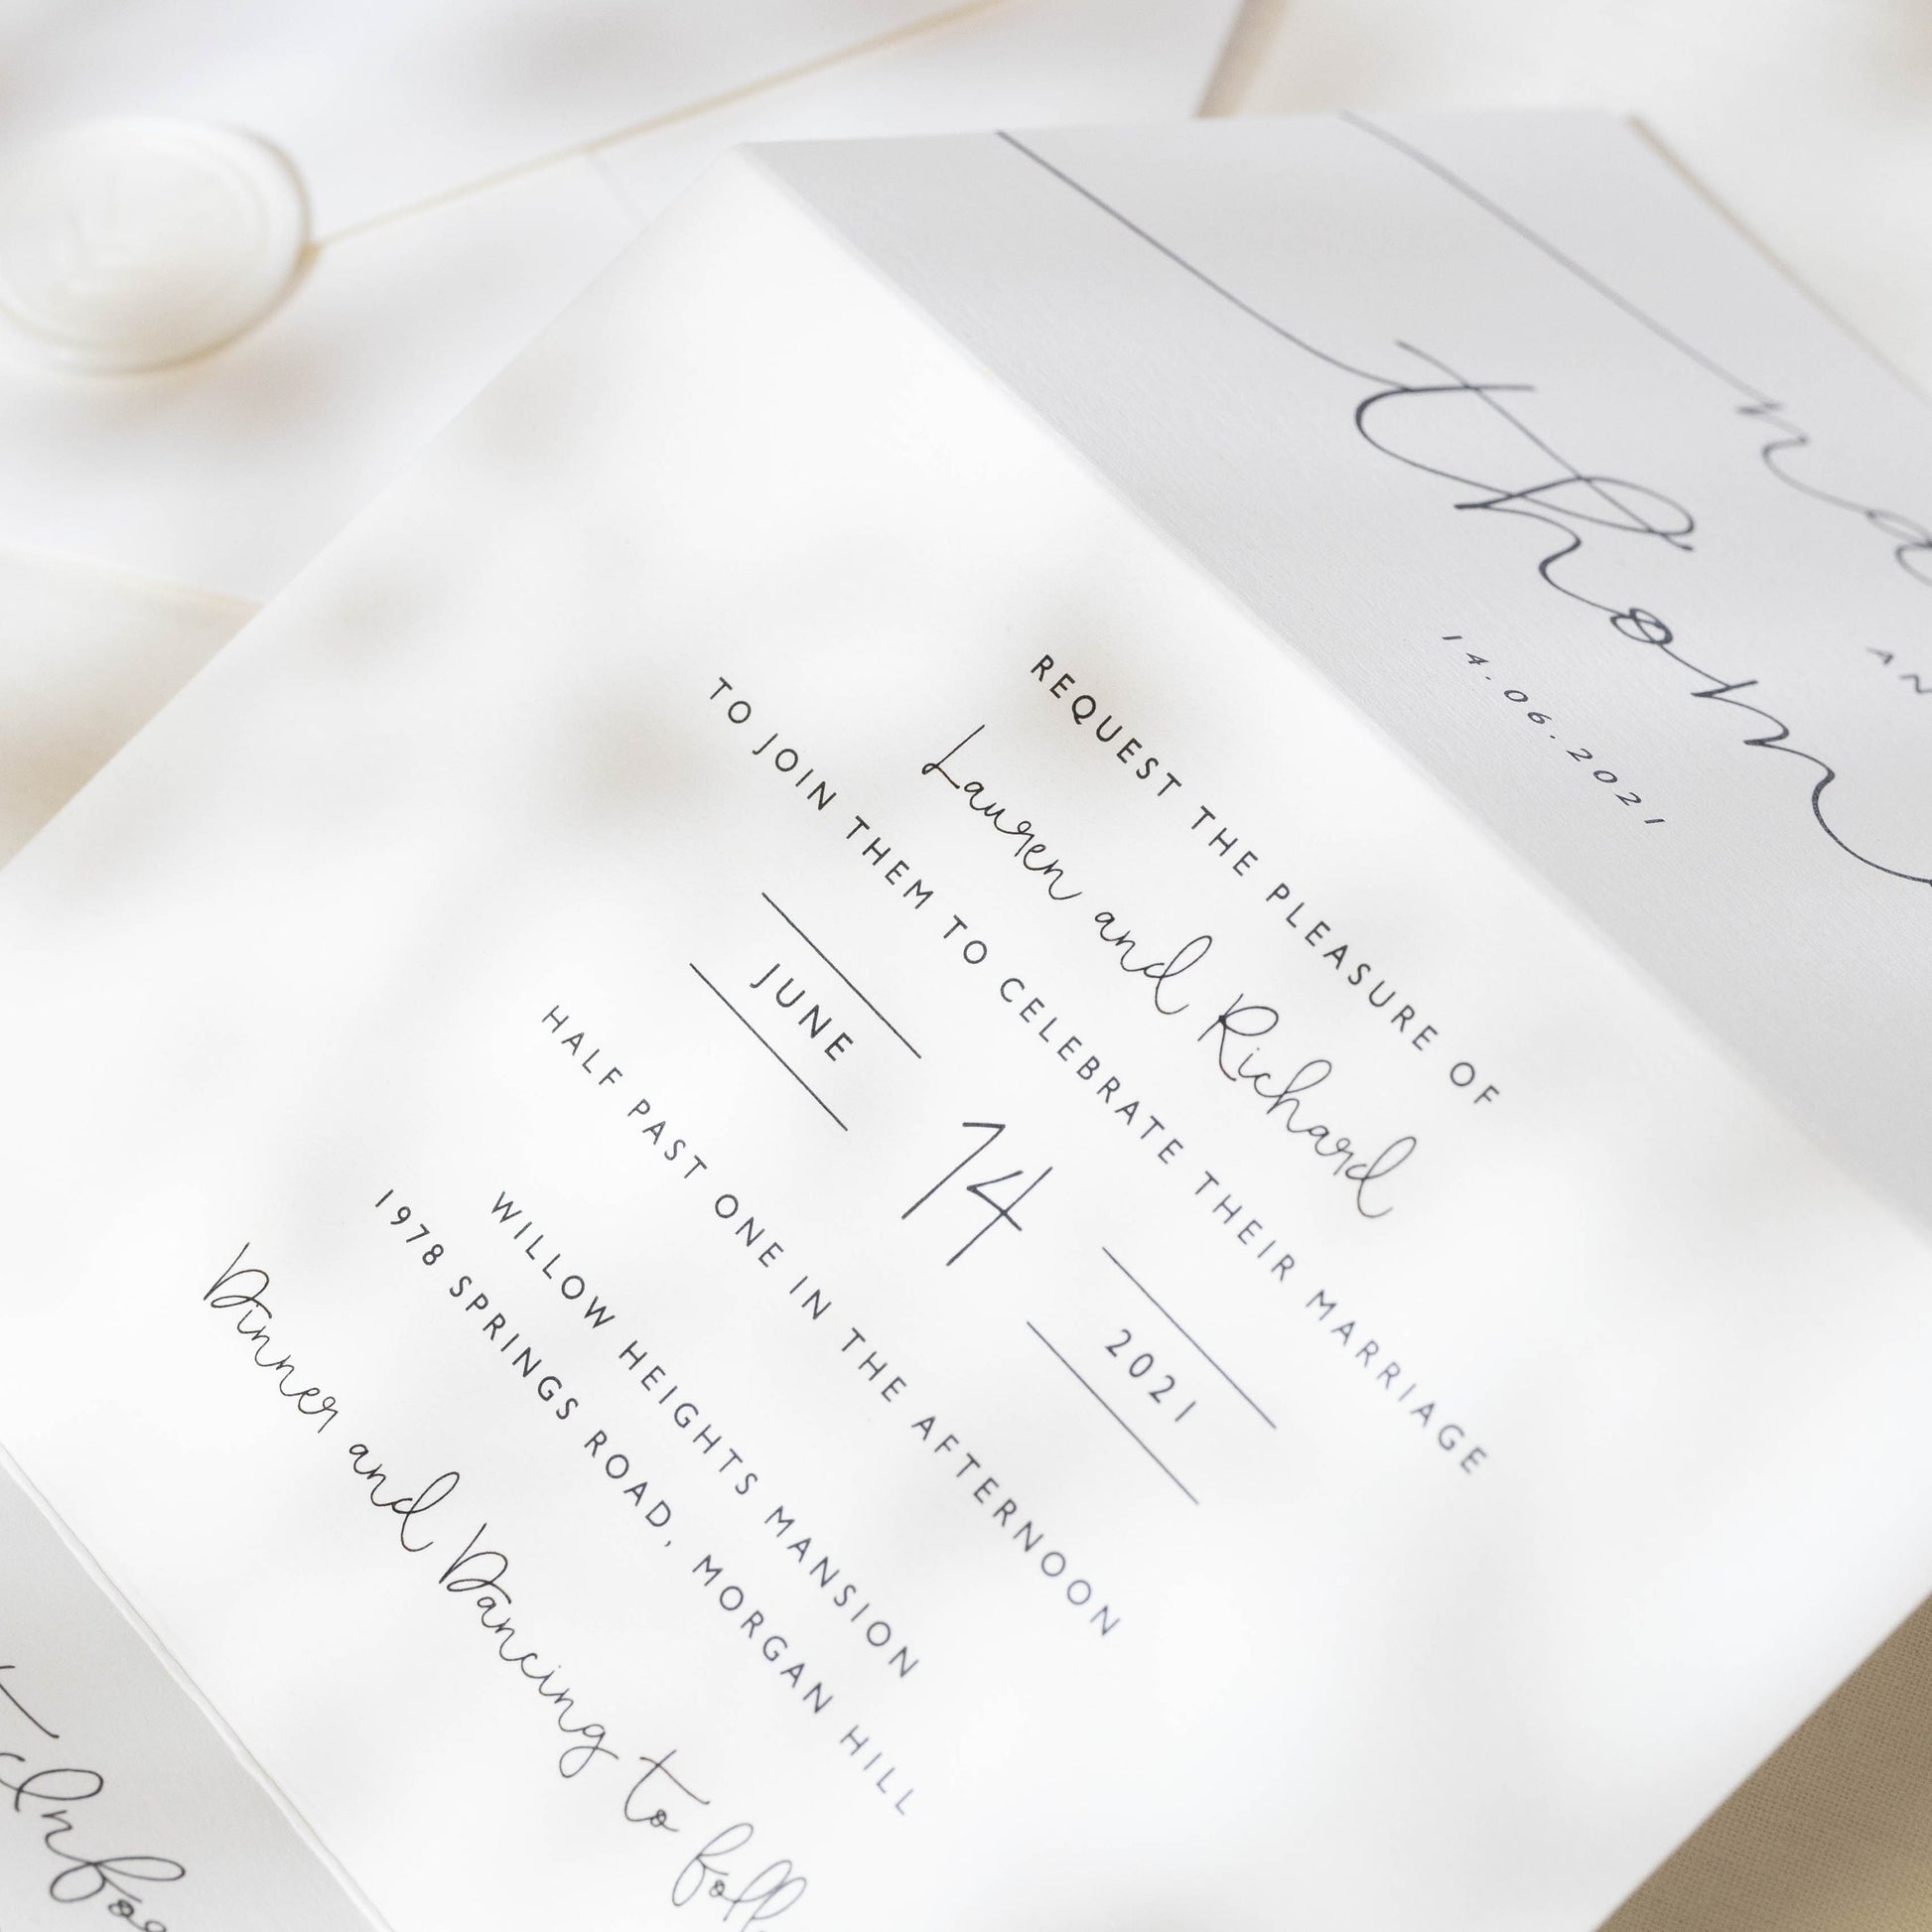 14.06.2021
REQUEST THE PLEASURE OF
Lauren and Richard
TO JOIN THEM TO CELEBRATE THEIR MARRIAGE
JUNE 14 2021
HALF PAST ONE IN THE AFTERNOON
WILLOW HEIGHTS MANSION
1978 SPRINGS ROAD, MORGAN HILL
Dinner and Dancing to